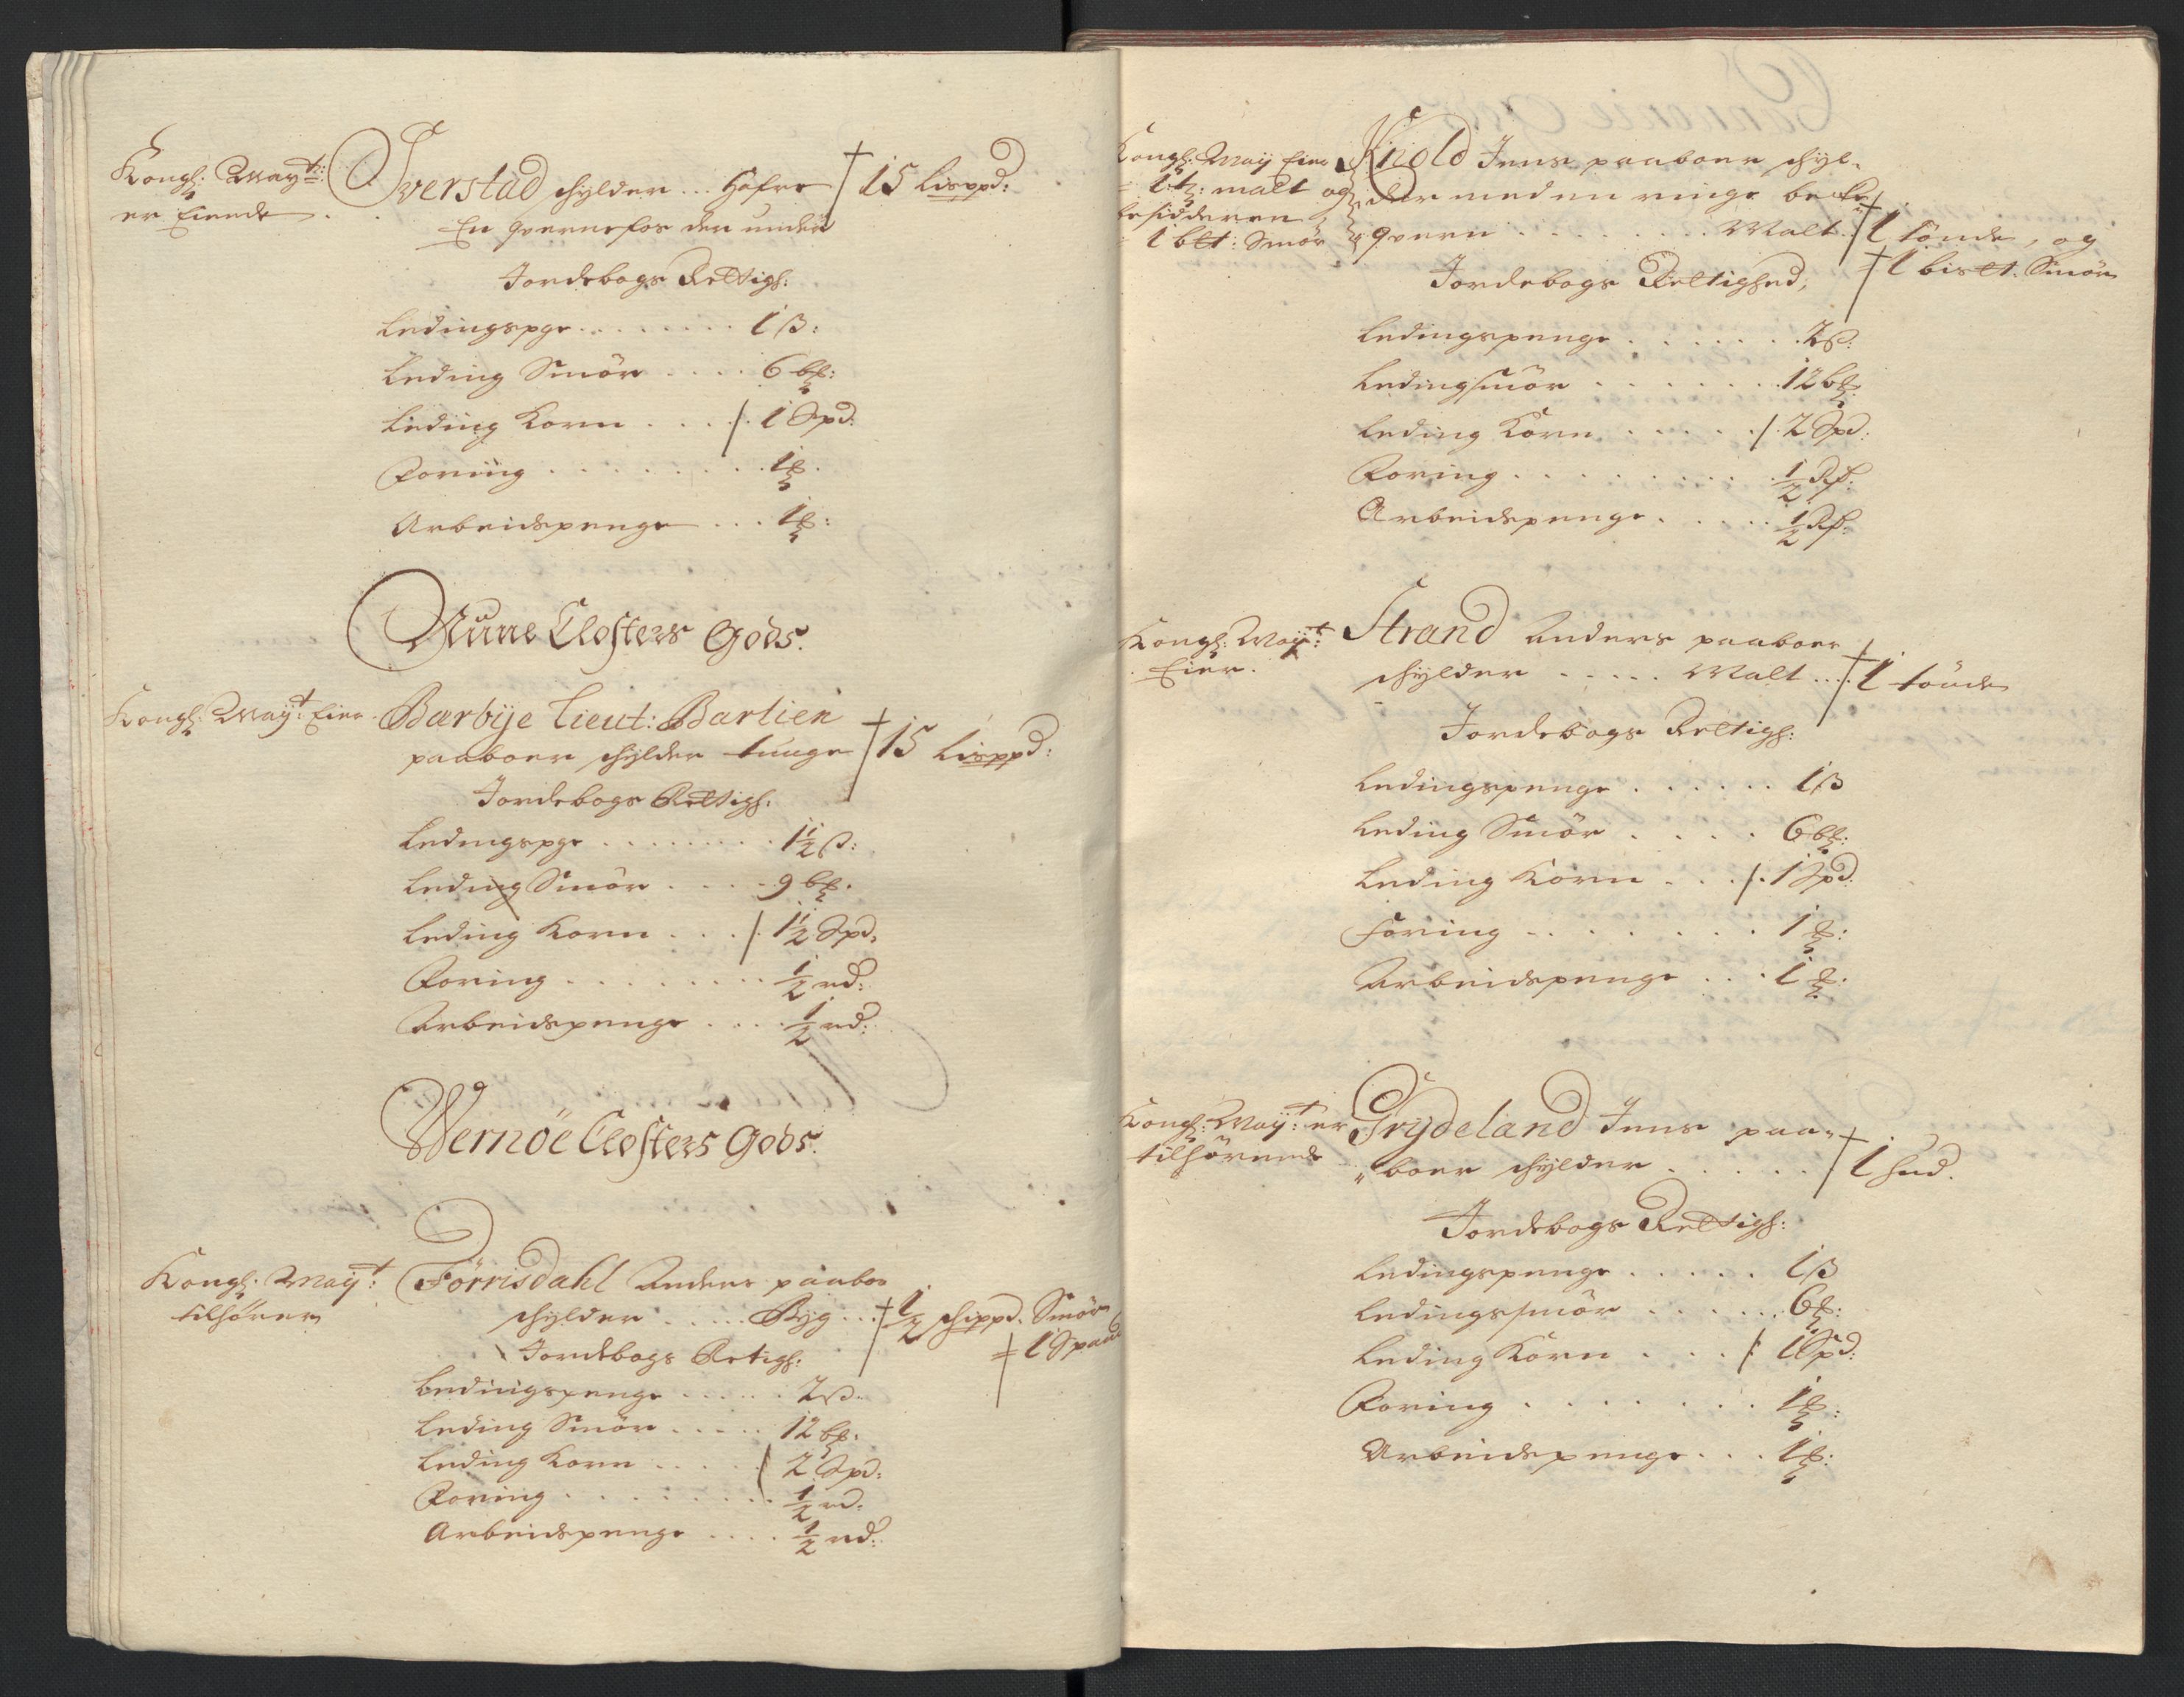 Kongl: Mayt:
er Eiende
Sverstad schylder ... Hafre 15 Lisppd:
En qvernefos der under
Jordebogs Rettigh:
Ledingspge ........ 1 ß:
Leding Smör .... 6 bl:
Leding Korn .... 1 Spd:
Foring ........ 1
Arbeidspenge ... 1
Clösters Gods.
Kongl: Mayt: Eier
Barbye Lieut: Barlien
paaboer schylder tunge 15 Lisppd:
Jordebogs Rettigh:
Ledingspge ........ 1½ ß:
Leding Smör .... 9
Leding Korn .... 1½ Spd:
Foring ........ ½ rd:
Arbeidspenge .... ½ rd:
Wernöe Closters Gods.
Kongl: Mayt:
tilhörer
Förrisdahl Anders paaboe
schylder ..... Byg ... ½ schippd. Smör
1 Spand
Jordebogs Retigh:
Ledingspenge ..... 2 ß
Leding Smör ..... 12
Leding Korn ..... 2 Spd:
Foring ........ ½ rd:
Arbeidspenge .... ½ rd:
Kongl: May Eier
1 t: malt og
besidderen
1 Smör
Knold Jens paaboer schyl-
der med en ringe becke
qvern ........ Malt 1 Tönde, og
1 Smör
Jordebogs Rettighed,
Ledingspenge ...... 2 ß:
Ledingsmör ....... 12
Leding Korn ..... 2 Spd:
Foring ........ ½
Arbeidspenge ..... ½
Kongl: Mayt:
Eier.
Strand Anders paaboer
schylder ..... Malt ... 1 tönde
Jordebogs Rettigh:
Ledingspenge ...... 1 ß
Leding Smör .... 6
Leding Korn .... 1 Spd:
Foring ........ 1
Arbeidspenge ... 1
Kongl: Mayt: er
tilhörende
Grydeland Jens paa-
boer schylder ..... 1 hud.
Jordebogs Rettigh:
Ledingspenge ..... 1 ß
Ledingssmör ...... 6
Leding Korn .... 1 Spd:
Foring ....... 1
Arbeidspenge ... 1